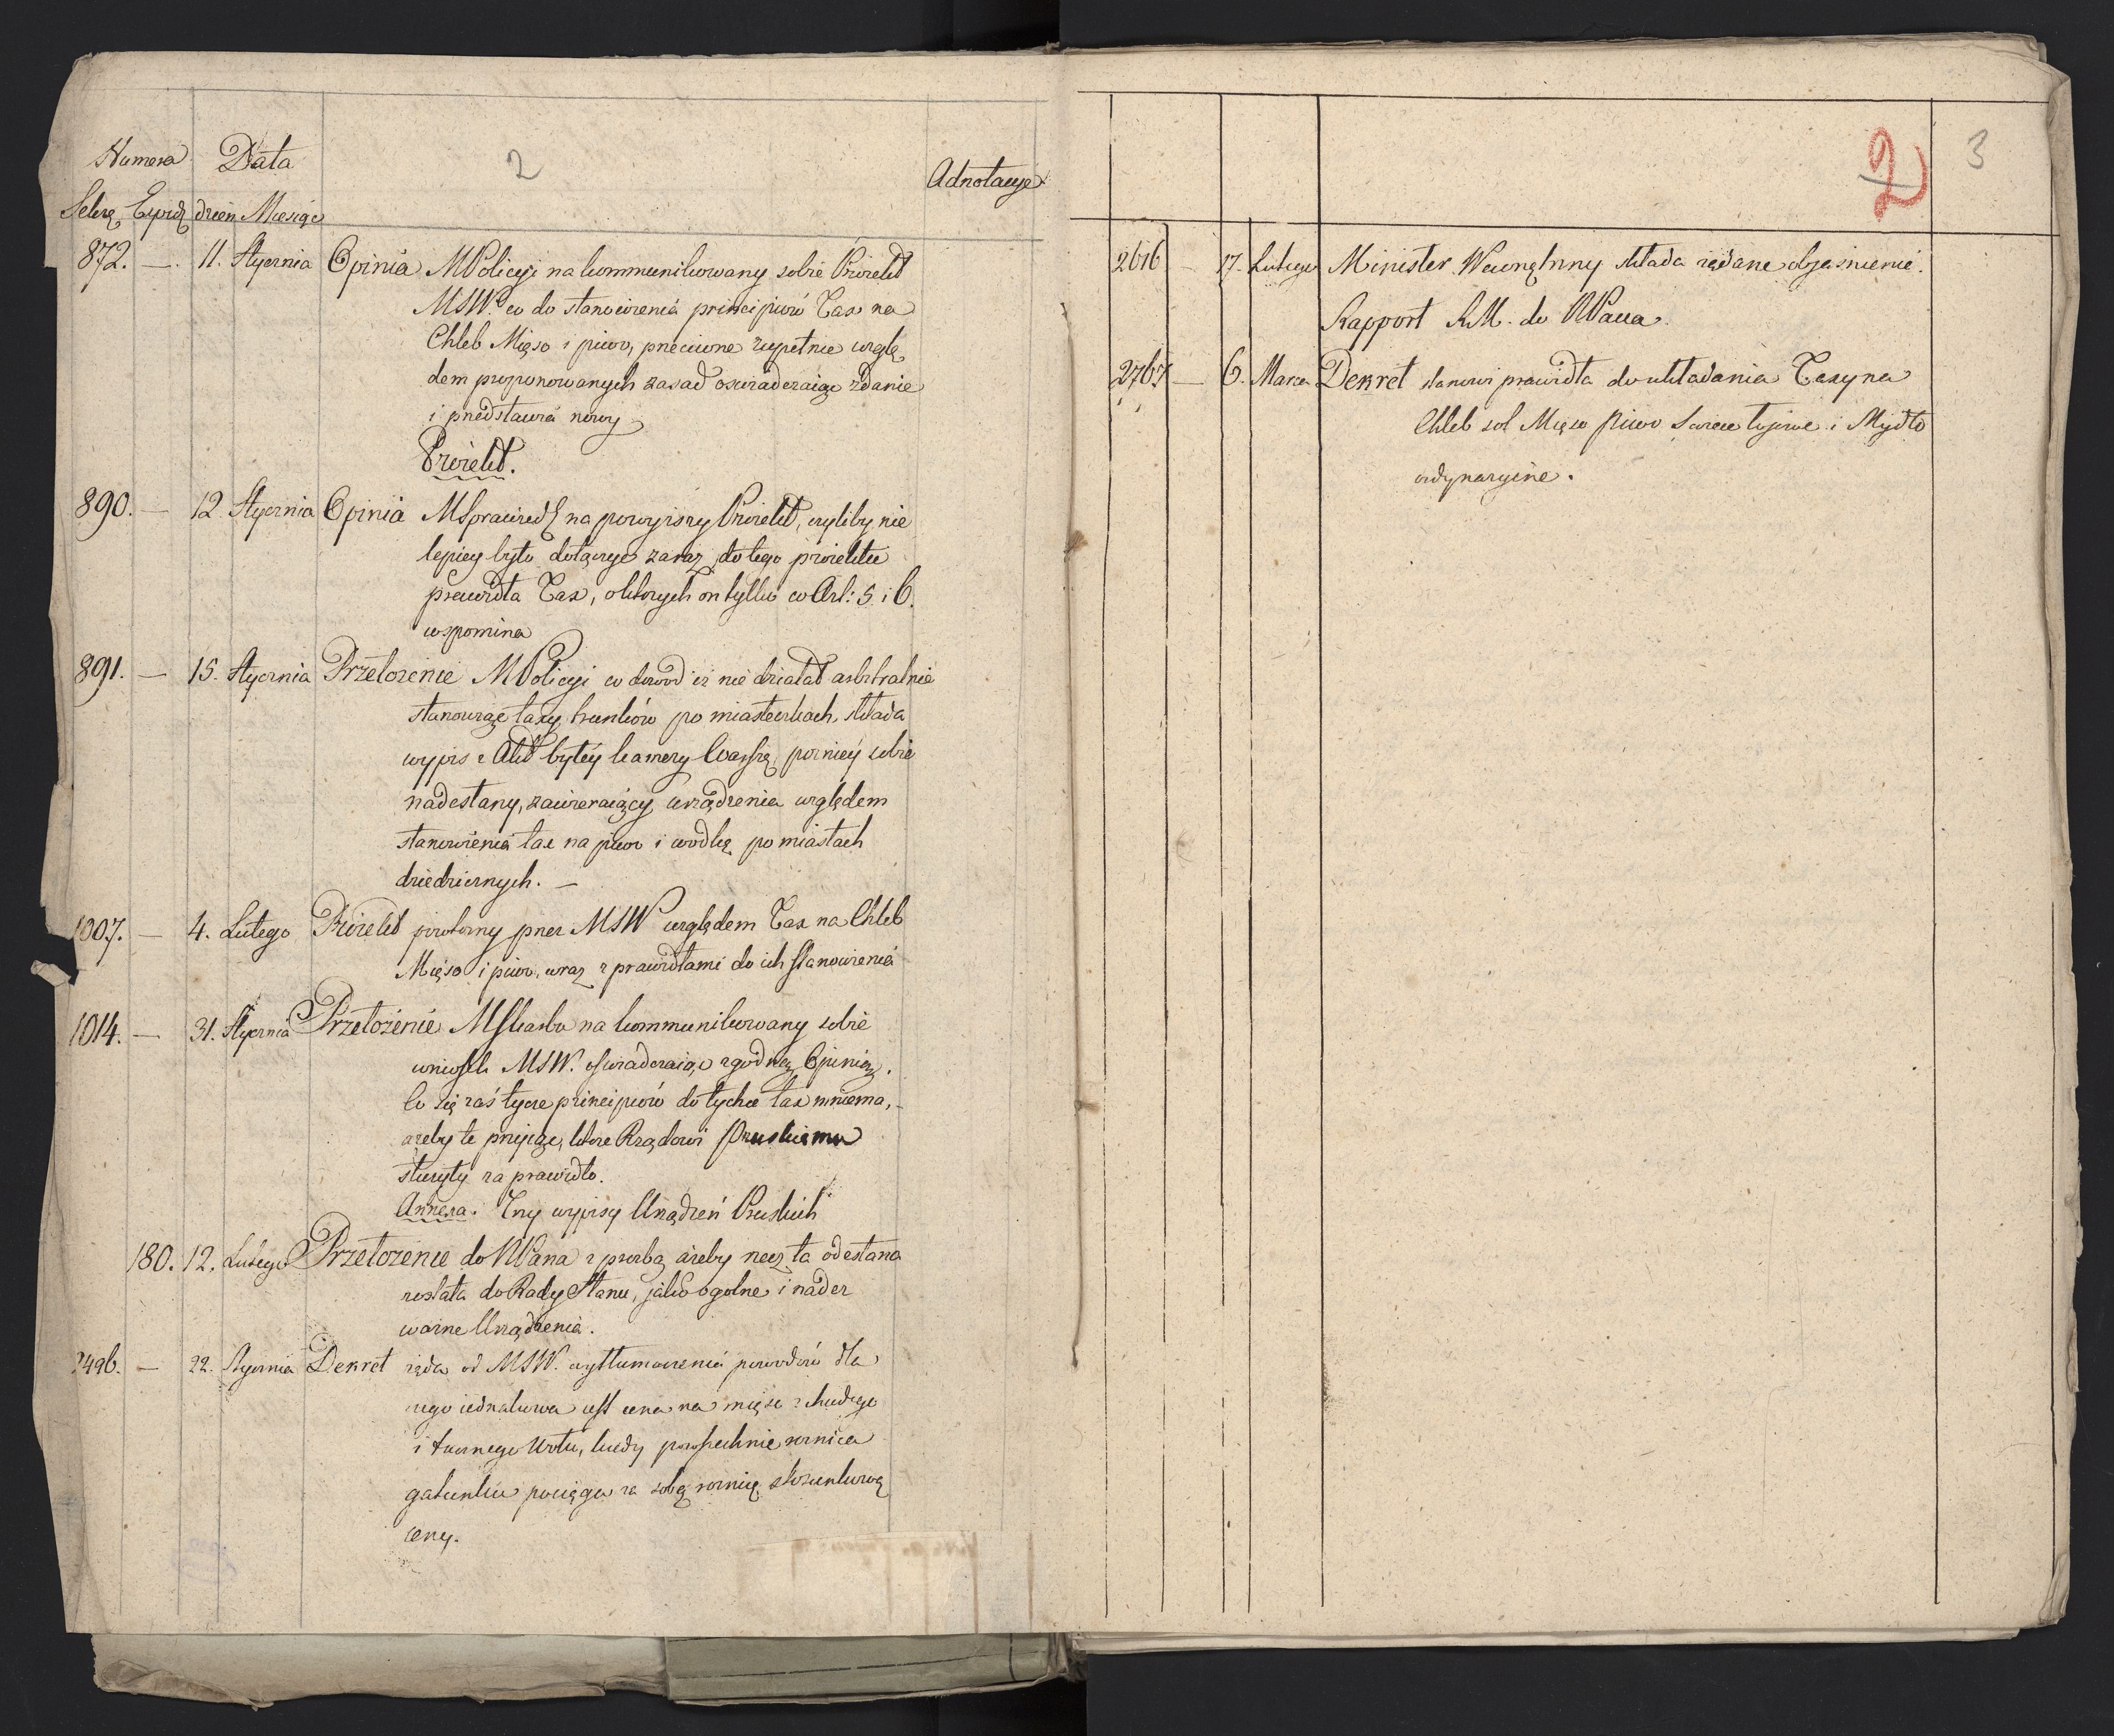 Numera Data
2
Adnotacye
Sekre Expedy dzień Miesiąc
872. — 11. Stycznia Opinia MPolicyi na kommunikowany sobie Proiekt
MSW. co do stanowienia principiów Tax na
Chleb Mięso i piwo, przeciwne zupełnie wzglę
dem proponowanych zasad oswiadczaiąc zdanie
i przedstawia nowy
Proiekt.
890. — 12 Stycznia Opinia MSprawiedl na powyższy Proiekt, czyliby nie
lepiey było dołączyc zaraz do tego proiektu
prawidła Tax, o których on tylko w Art: 5. i 6.
wspomina
891. — 15. Stycznia Przełożenie MPolicyi w dowod iż nie działał arbitralnie
stanowiąc taxy trunków po miasteczkach, składa
wypis z Akt byłéy kamery Warszą, pozniéy sobie
nadesłany, zawieraiący urządzenia względem
stanowienia tax na piwo i wodkę po miastach
dziedzicznych. —
1007. — 4. Lutego Proiekt powtorny przez MSW względem Tax na Chleb
Mięso i piwo, wraz z prawidłami do ich stanowienia
1014. — 31. Stycznia Przełożenie MSkarbu na kommunikowany sobie
wniosek MSW. oswiadczaiąc zgodną Opinią.
Co się zaś tycze principiów do tychże tax mniema,
ażeby te przyiąć, które Rządowi Pruskiemu
służyły za prawidło.
Annexa. Trzy wypisy Urządzeń Pruskich
180. 12. Lutego Przełożenie do NPana z prozbą ażeby rzecz ta odesłana
została do Rady Stanu, jako ogolne i nader
ważne Urządzenia.
2496. — 22. Stycznia Dekret żąda od MSW. wytłumaczenia powodów dla
czego iednakowa iest cena na mięso z chudego
i tucznego wołu, kiedy powszechnie roznica
gatunku pociąga za sobą roznicę stosunkową
ceny.
2 3
2616 — 17. Lutego Minister Wewnętrzny składa żądane objasnienie.
Rapport RM. do NPana.
2767 — 6. Marca Dekret stanowi prawidła do układania Taxy na
Chleb sol Mięso piwo Swiece łojowe i Mydło
ordynaryine.